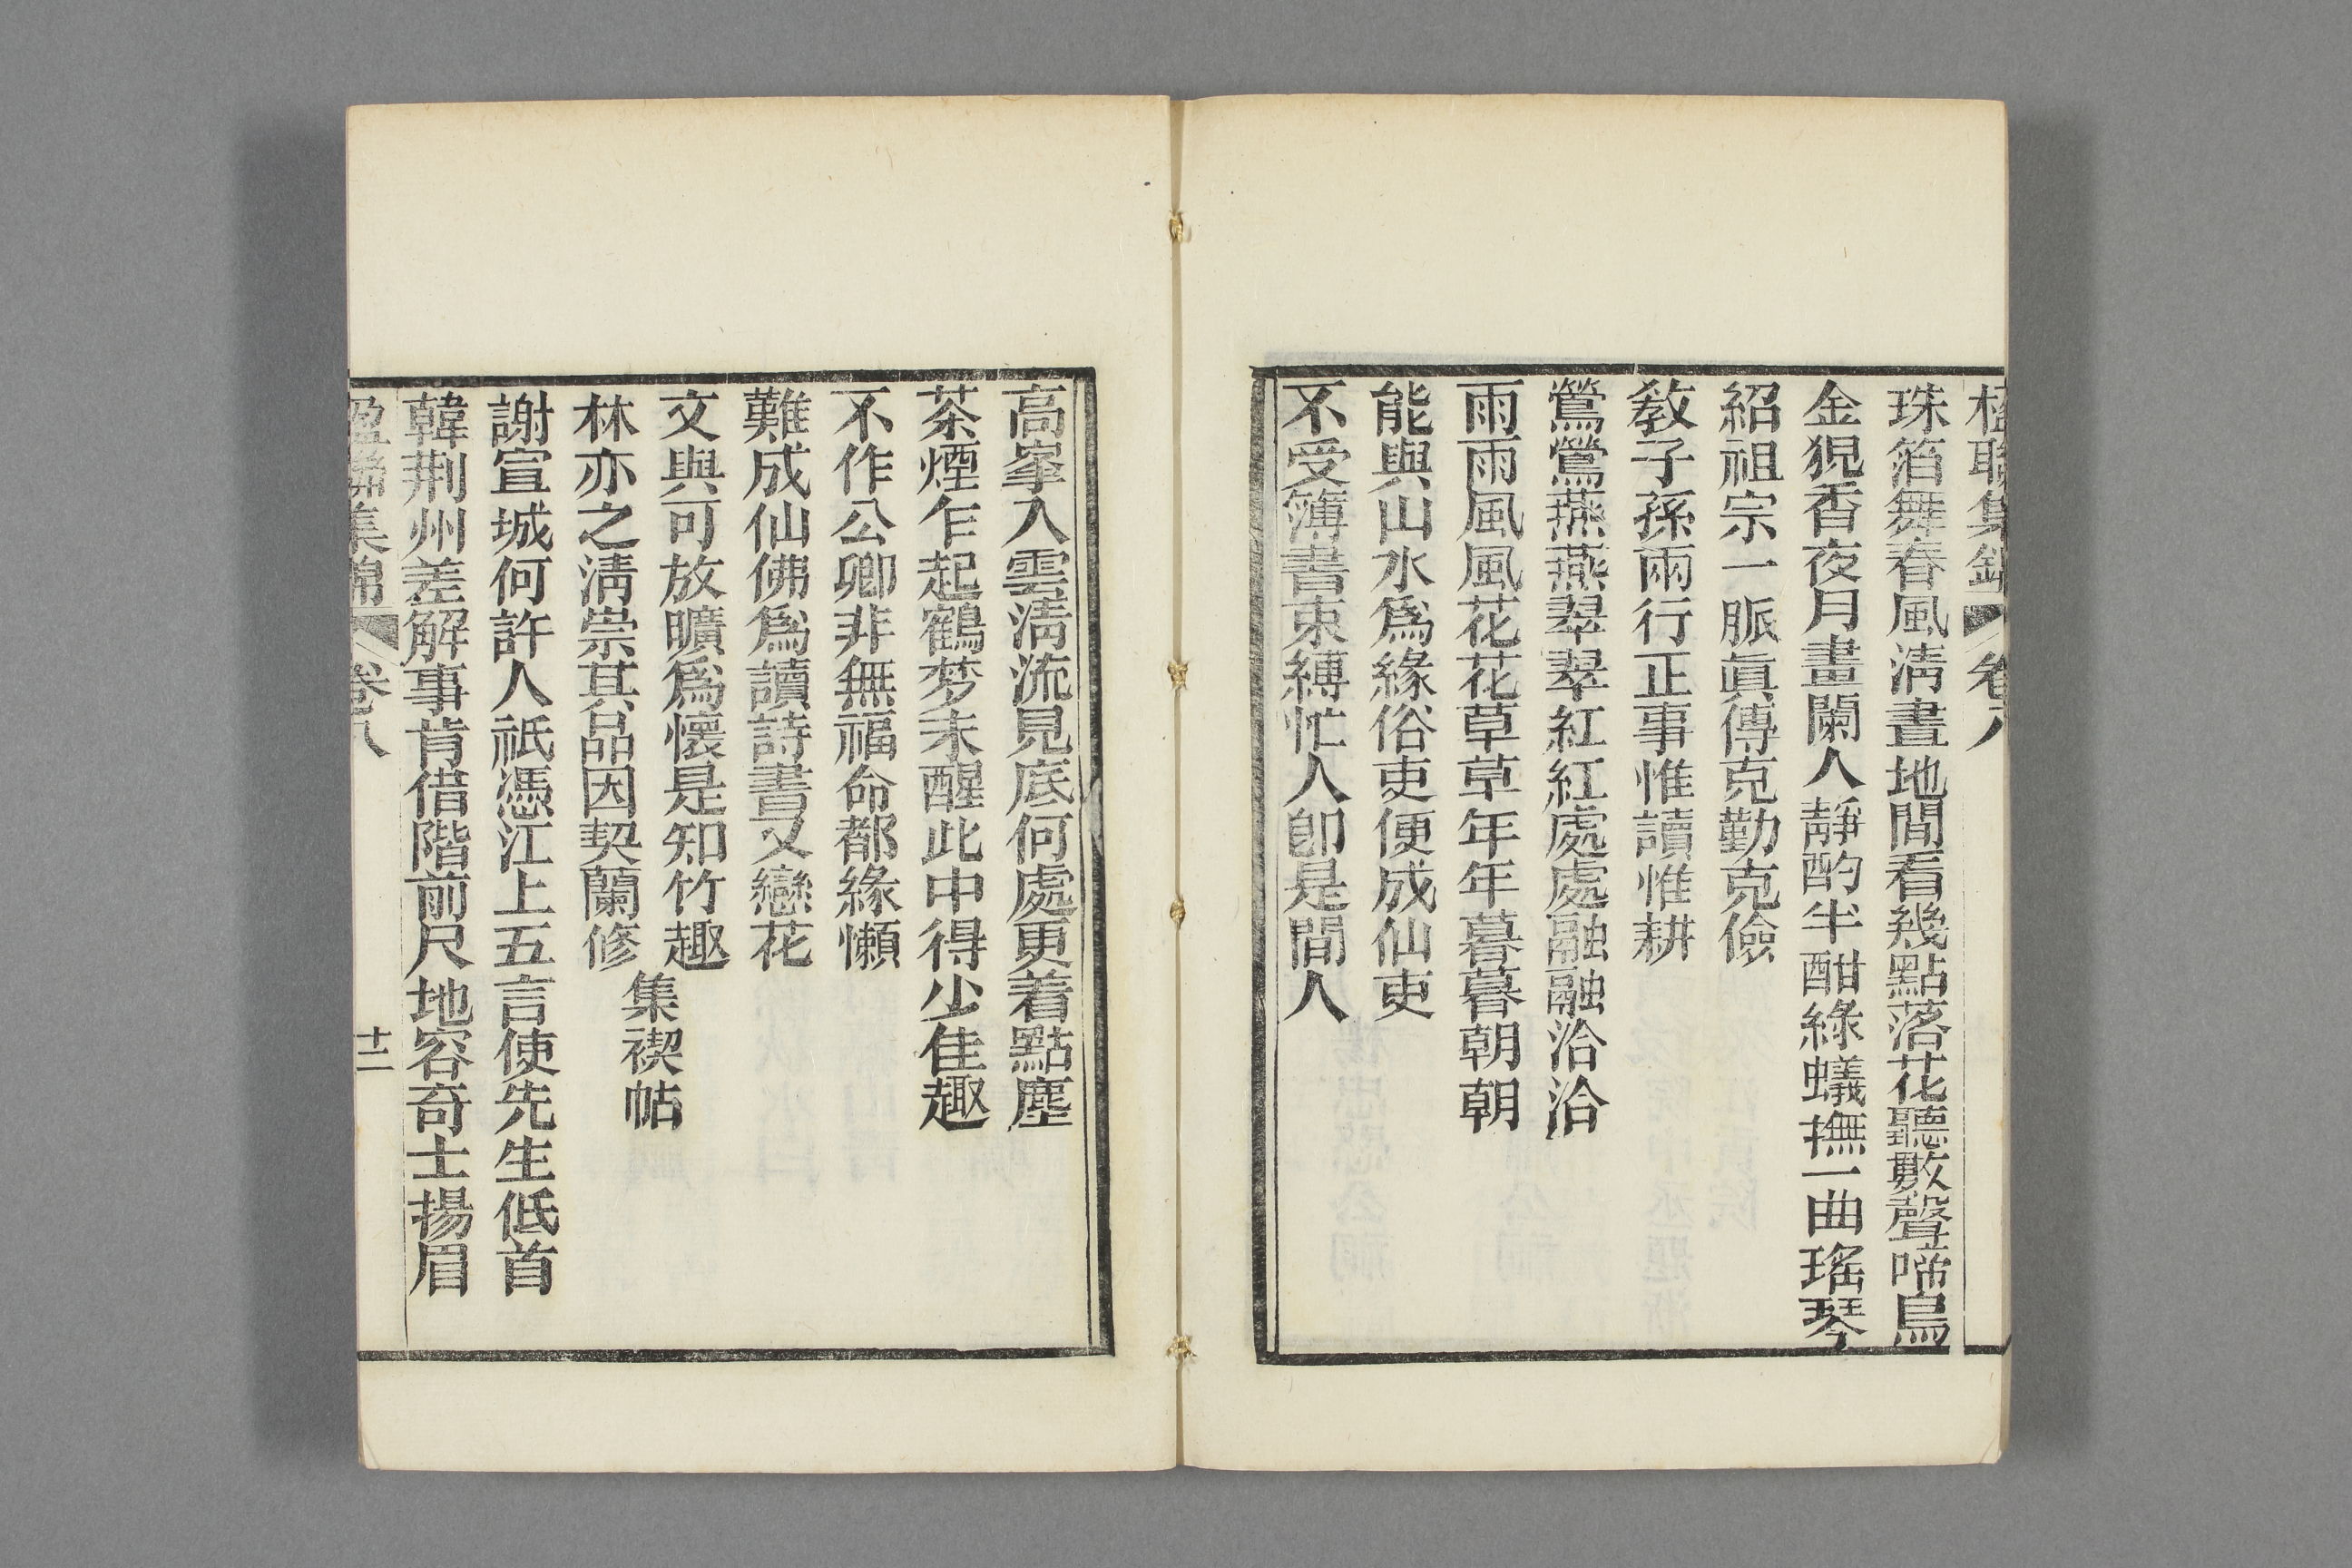 楹聯集錦 卷八
珠箔舞春風清晝地間看幾點落花聽數聲啼鳥
金猊香夜月畫闌人靜酌半酣綠蟻撫一曲瑤琴
紹祖宗一脈眞傳克勤克儉
敎子孫兩行正事惟讀惟耕
鶯鶯燕燕翠翠紅紅處處融融洽洽
雨雨風風花花草草年年暮暮朝朝
能與山水爲緣俗吏便成仙吏
不受簿書束縛忙人卽是閒人
高峯入雲淸流見底何處更着點塵
茶煙乍起鶴梦未醒此中得少佳趣
不作公卿非無福命都緣懶
難成仙佛爲讀詩書又戀花
文與可放曠爲懷是知竹趣
林亦之淸崇其品因契蘭修
集禊帖
謝宣城何許人祇憑江上五言使先生低首
韓荆州差解事肯借階前尺地容奇士揚眉
楹聯集錦 卷八 十二